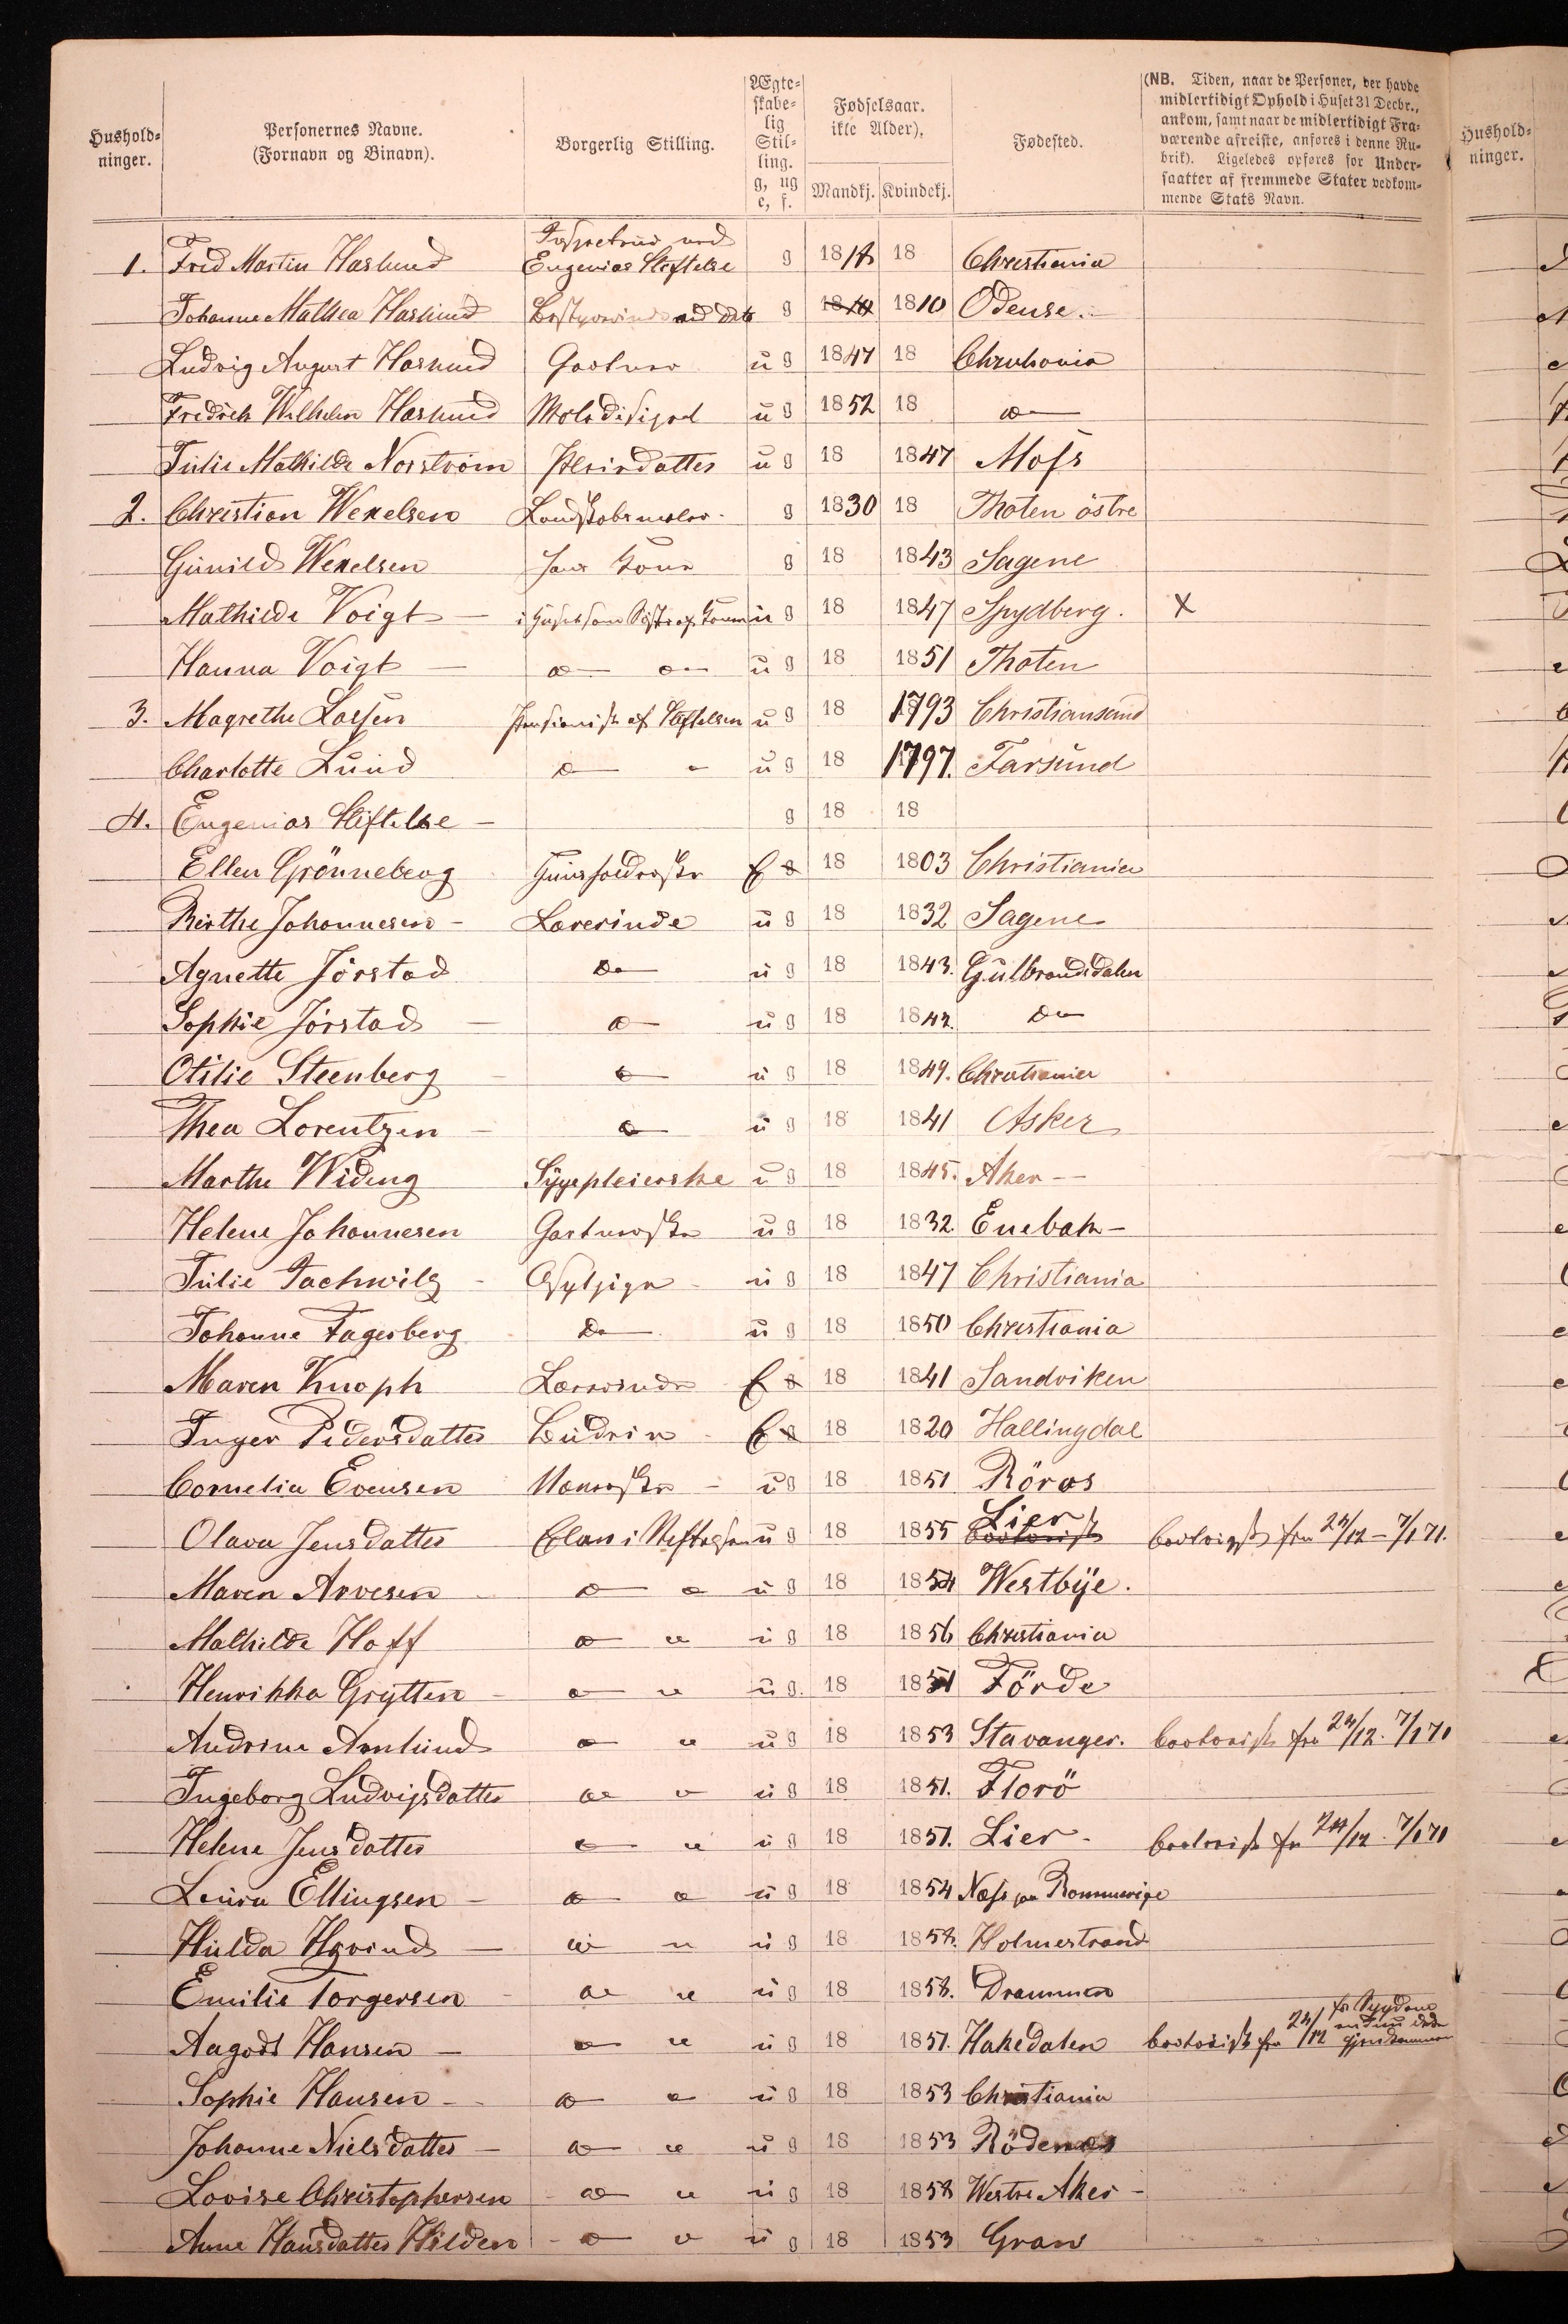 Hushold-
ninger.
Personernes Navne.
(Fornavn og Binavn).
Borgerlig Stilling.
Ægte-
skabe-
lig
Stil-
ling.
g, ug
e, f.
Fødselsaar.
ikke Alder).
Mandkj. Kvindekj.
Fødested.
(NB. Tiden, naar de Personer, der havde
midlertidigt Ophold i Huset 31 Decbr.,
ankom, samt naar de midlertidigt Fra-
værende afreiste, anføres i denne Ru-
brik). Ligeledes opføres for Under-
saatter af fremmede Stater vedkom-
mende Stats Navn.
Hushold-
ninger.
1. Fred Martin Haslund Eugenias Stiftelse g 18 18 Christiania
Johanne Mathea Haslund g 1810 Odense.
Ludvig August Haslund Gartner u g 1847 18 Christiania
Fredrik Wilhelm Haslund u g 1852 18
Julie Mathilde Norström u g 18 1847 Moss
2. Christian Wexelsen Landskabsmaler g 1830 18 Thoten östre
Gunild Wexelsen Hans Kone g 18 1843 Sagene
Mathilde Voigt u g 18 1847 Spydberg. X
Hanna Voigt u g 18 1851 Thoten
3. Magrethe Lassen Pensionist af Stiftelsen u g 18 1793 Christiansand
Charlotte Lund u g 18 1797. Farsund
4. Eugenias Stiftelse g 18 18
Ellen Grönneberg E g 18 1803 Christiania
Birthe Johannesen Lærerinde u g 18 1832 Sagene
Agnette Jörstad Do u g 18 1843. Gulbrandsdalen
Sophie Jörstad u g 18 1842. Do
Otilie Steenberg u g 18 1849. Christiania
Thea Lorentzen u g 18 1841 Asker
Marthe Widing Sygepleierske u g 18 1845. Aker
Helene Johannesen Gartnerske u g 18 1832. Enebak
Julie u g 18 1847 Christiania
Johanne Fagerberg Do u g 18 1850 Christiania
Maren Knoph Lærerinde E g 18 1841 Sandviken
Inger Pedersdatter Budeie E g 18 1820 Hallingdal
Cornelia Evensen u g 18 1851 Röros
Olava Jensdatter Elev i Stiftelsen u g 18 1855 Lier bortreist fra 24/12 - 7/1 71.
Maren Arvesen u g 18 1854 Westbye.
Mathilde Hoff u g 18 1856 Christiania
Henrikka Grytten u g. 18 1851 Förde
Andrine u g 18 1853 Stavanger. bortreist fra 24/12. 7/1 71
Ingeborg Ludvigsdatter u g 18 1851. Florö
Helene Jensdatter u g 18 1851. Lier bortreist fra 24/12. 7/1 71
Laura Ellingsen u g 18 1854 Næs paa Rommerige
Hulda u g 18 1858. Holmestrand
Emilie Torgersen u g 18 1858. Drammen
Aagods Hansen u g 18 1851. Hakedalen bortreist fra 24/12 for Sygdom
Sophie Hansen u g 18 1853 Christiania
Johanne Nielsdatter u g 18 1853 Rödenes
Lovise Christophersen u g 18 1858 Westre Aker
Anne Hansdatter Hilden u g 18 1853 Gran